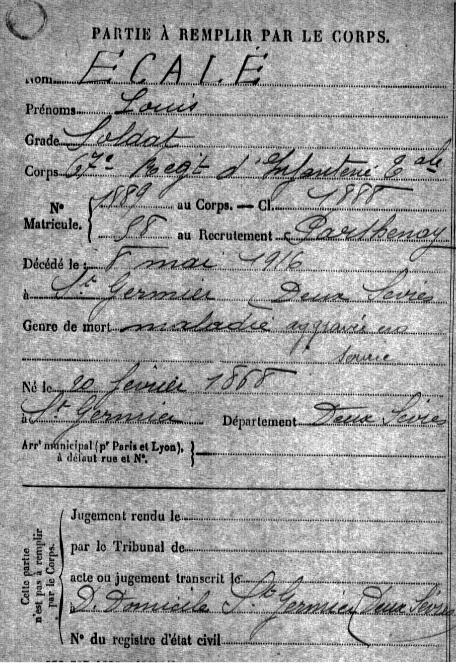 PARTIE À REMPLIR PAR LE CORPS.
Nom ECALÉ
Prénoms Louis
Grade Soldat
Corps 67e Regt d'Infanterie Tale
N° Matricule. { 1889 au Corps. — Cl. 1888
98 au Recrutement Parthenay
Décédé le 8 mai 1916
à St Germier Deux Sèvres
Genre de mort maladie aggravée en
service
Né le 20 février 1868
à St Germier Département Deux Sèvres
Arrt municipal (pr Paris et Lyon),
à défaut rue et N°. }
Cette partie
n'est pas à remplir
par le Corps.
Jugement rendu le
par le Tribunal de
acte ou jugement transcrit le
à D. Domicile St Germier Deux Sèvres
N° du registre d'état civil